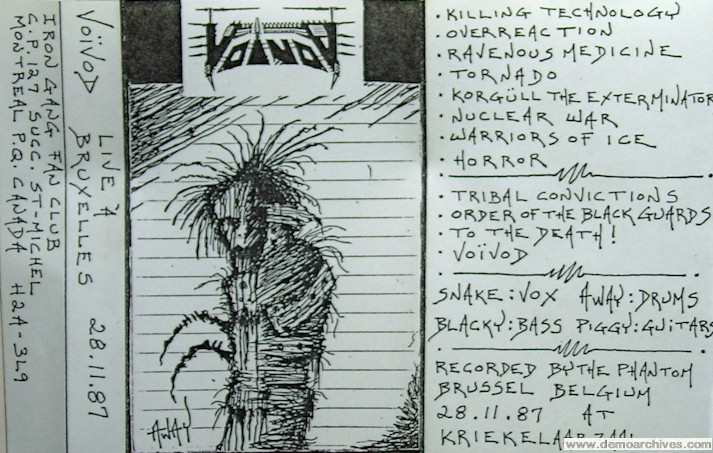 IRON GANG FAN CLUB
C.P. 127 SUCC. ST-MICHEL
MONTREAL P.Q. CANADA H2A-3L9
VOÏVOD LIVE À BRUXELLES 28.11.87
VOÏVOD
AWAY
· KILLING TECHNOLOGY
· OVERREACTION
· RAVENOUS MEDICINE
· TORNADO
· KORGÜLL THE EXTERMINATOR
· NUCLEAR WAR
· WARRIORS OF ICE
· HORROR
· TRIBAL CONVICTIONS
· ORDER OF THE BLACK GUARDS
· TO THE DEATH!
· VOÏVOD
SNAKE: VOX AWAY: DRUMS
BLACKY: BASS PIGGY: GUITARS
RECORDED BY THE PHANTOM
BRUSSEL BELGIUM
28.11.87 AT
www.demoarchives.com